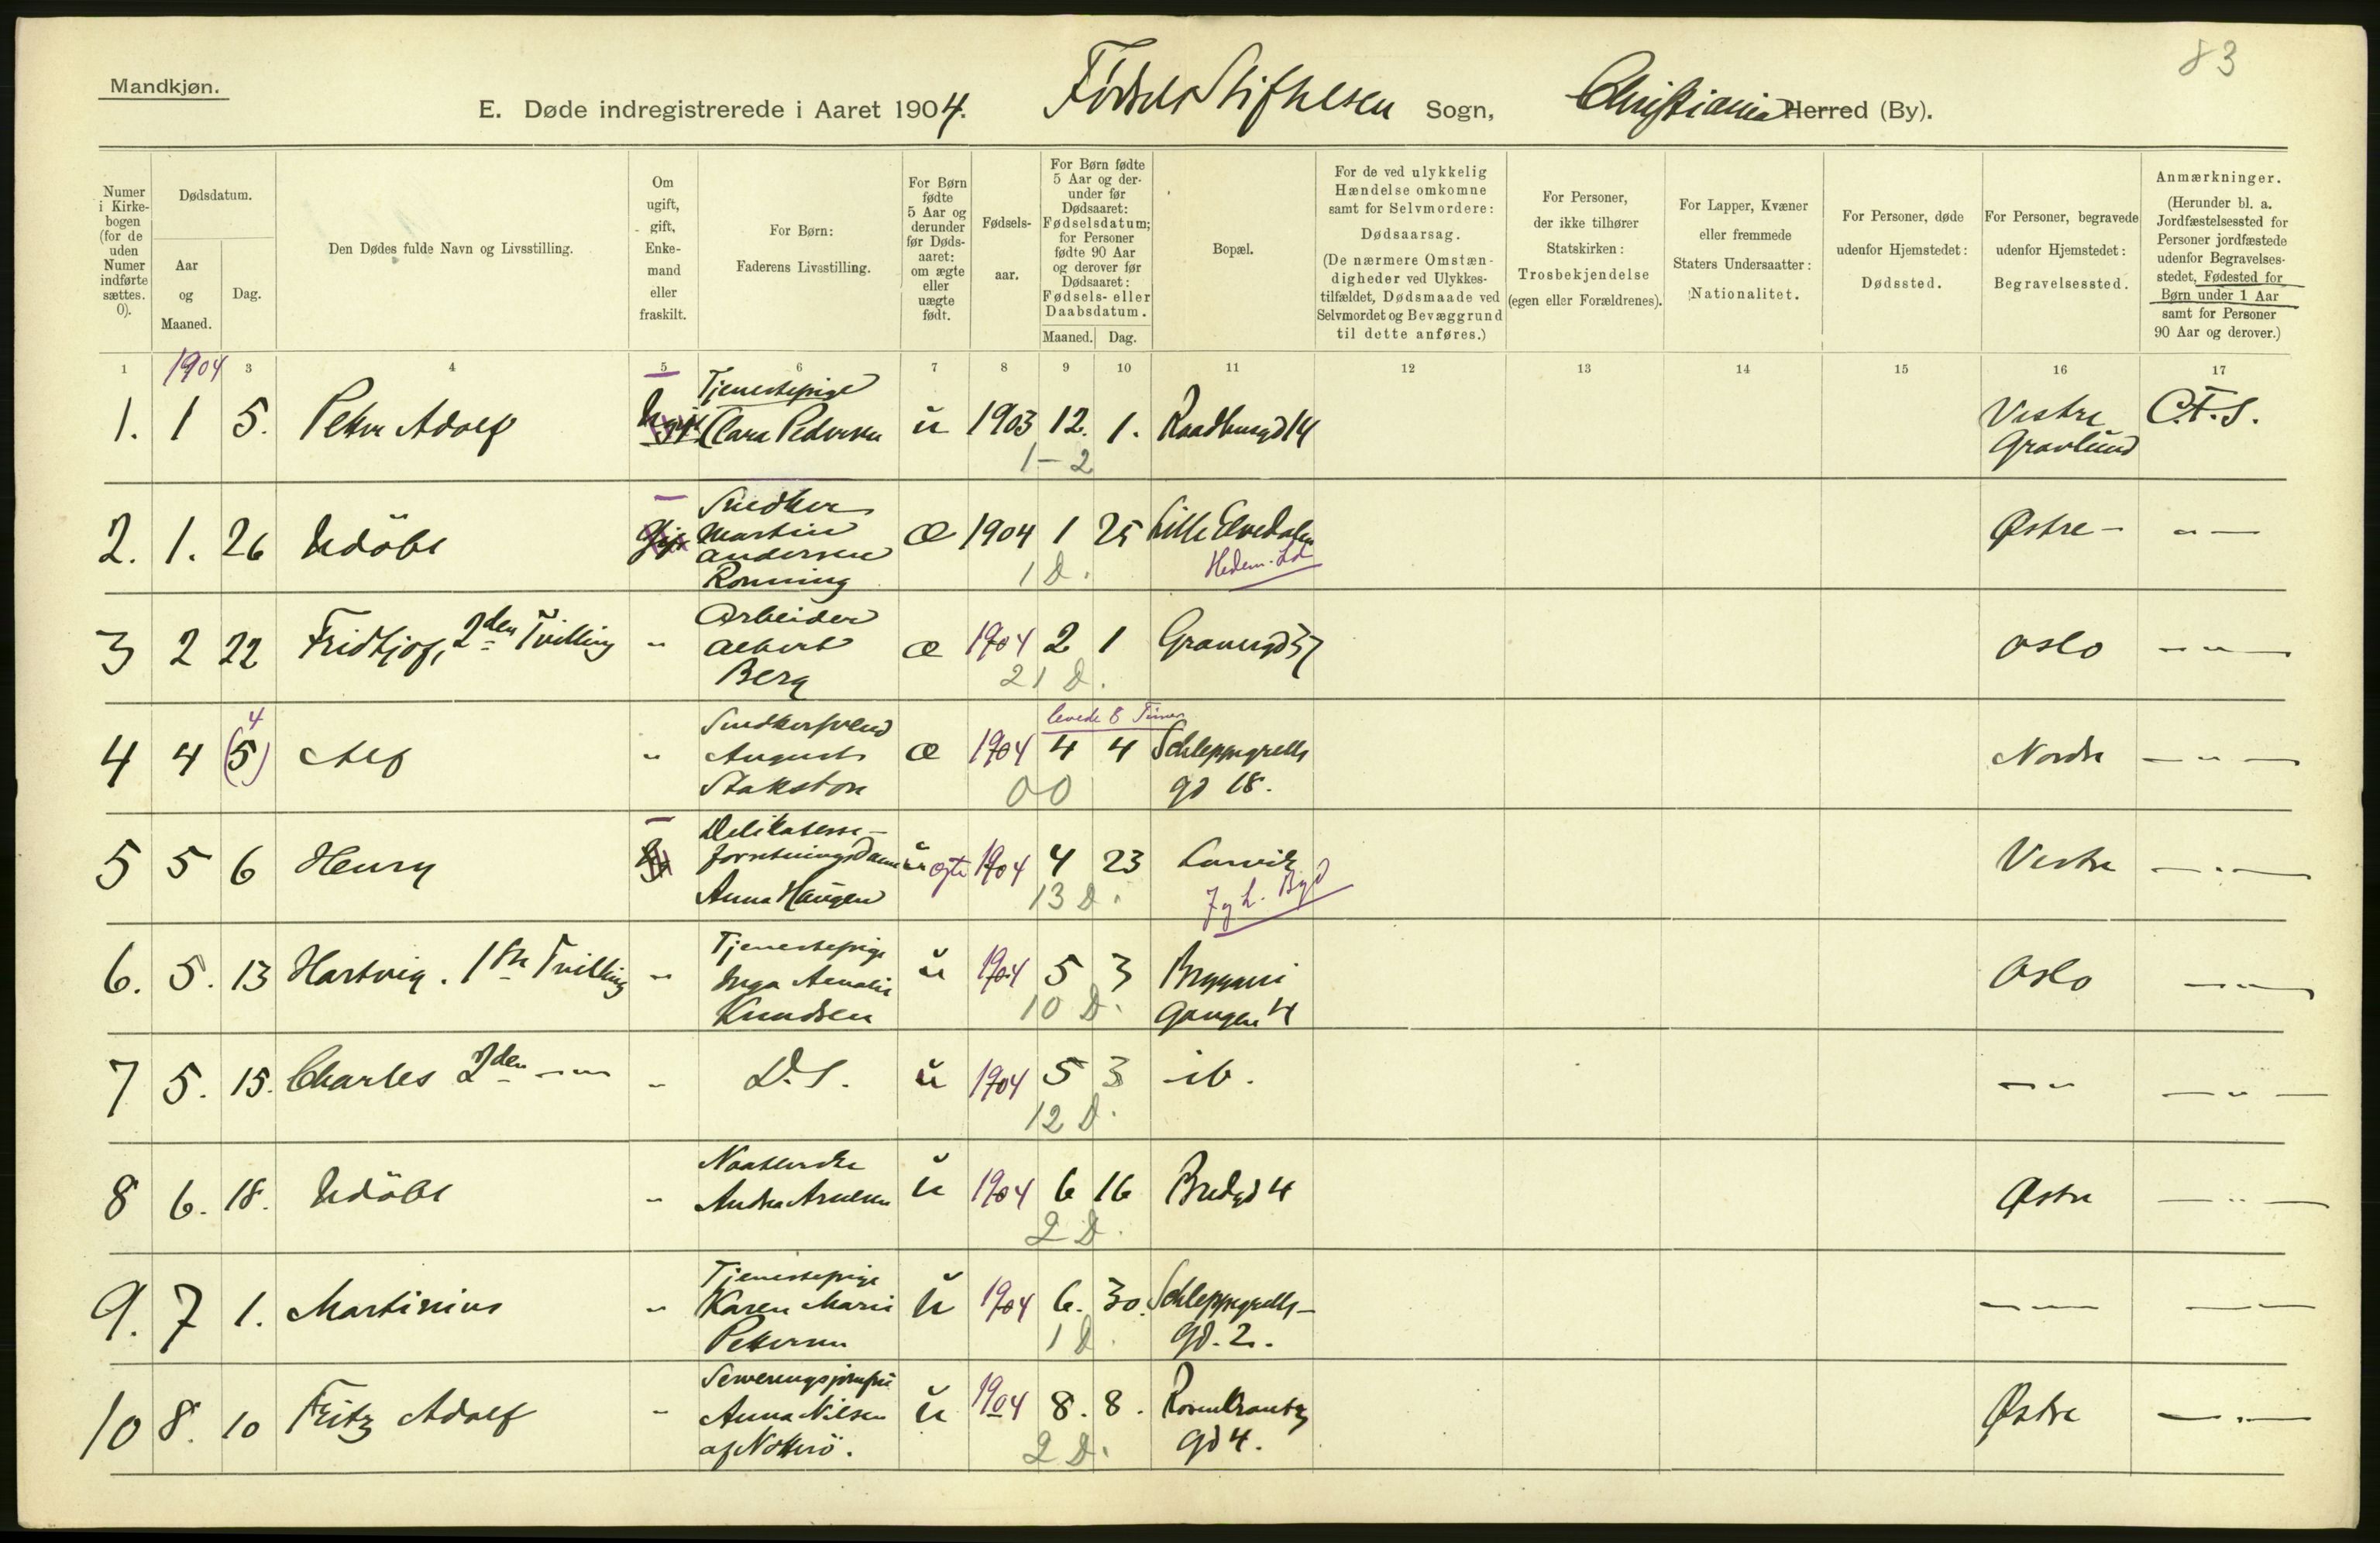 83
Mandkjøn.
E. Døde indregistrerede i Aaret 1904. Fødsels Stiftelsen Sogn, Christiania Herred (By).
Numer i Kirkebogen (for de uden Numer indførte sættes. 0).
Dødsdatum.
Aar og Maaned.
Dag.
Den Dødes fulde Navn og Livsstilling.
Om ugift, gift, Enkemand eller fraskilt.
For Børn: Faderens Livsstilling.
For Børn fødte 5 Aar og derunder før Dødsaaret: om ægte eller uægte født.
Fødselsaar.
For Børn fødte 5 Aar og derunder før Dødsaaret: Fødselsdatum; for Personer fødte 90 Aar og derover før Dødsaaret: Fødsels- eller Daabsdatum.
Maaned. Dag.
Bopæl.
For de ved ulykkelig Hændelse omkomne samt for Selvmordere: Dødsaarsag. (De nærmere Omstændigheder ved Ulykkestilfældet, Dødsmaade ved Selvmordet og Bevæggrund til dette anføres.)
For Personer, der ikke tilhører Statskirken: Trosbekjendelse (egen eller Forældrenes).
For Lapper, Kvæner eller fremmede Staters Undersaatter: Nationalitet.
For Personer, døde udenfor Hjemstedet: Dødssted.
For Personer, begravede udenfor Hjemstedet: Begravelsessted.
Anmærkninger. (Herunder bl. a. Jordfæstelsessted for Personer jordfæstede udenfor Begravelsesstedet, Fødested for Børn under 1 Aar samt for Personer 90 Aar og derover.)
1 1904 3 4 5 6 7 8 9 10 11 12 13 14 15 16 17
1. 1 5. Peter Adolf Tjenestepige Clara Pedersen u 1903 12. 1. Raadhusgd 14 Vestre Gravlund C.F.S.
1 - 2
2. 1. 26 Udöbt Snedker Martin Andersen Ronning Æ 1904 1 25 Lille Elvedalen Østre - " -
1 D. Hedem. Ld
3 2 22 Fridtjof, 2den Tvilling " Arbeider Albert Berg Æ 1904 2 1 Grønnergd 37 Oslo - " -
21 D.
4 4 (5) 4 Alf " Snedkersvend August Stakston Æ 1904 4 4 levede 8 Timer Schleppegrells gd 18. Nordre - " -
00
5 5 6 Henry Delikatesse-forretningsdame Anna Haugen u ægte 1904 4 23 Larvik Vestre - " -
13 D. J. & L. Byd
6. 5. 13 Hartvig. 1ste Tvilling " Tjenestepige Inga Amalie Knudsen u 1904 5 3 Bryggeri Gangen 4 Oslo - " -
10 D.
7 5. 15. Charles 2den - " - " D.S. u 1904 5 3 ib. - " - " -
12 D.
8 6. 18. Udöbt " Andrea u 1904 6 16 Bredgd 4 Østre - " -
2 D.
9. 7 1. Martinius " Tjenestepige Karen Marie Pettersen u 1904 6. 30. Schleppegrells- gd. 2. - " - - " -
1 D.
10 8. 10 Fritz Adolf " Serveringsjomfru Anna Nilsen af Nøtterö. u 1904 8. 8. Rosenkrantz gd 4. Østre - " -
2 D.